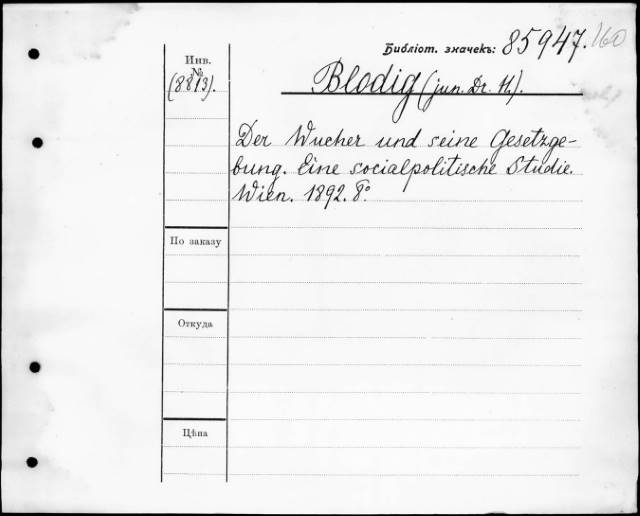 Библіот. значекъ: 85947. 160
Инв.
№
(8813).
Blodig (jun. Dr. H.).
Der Wucher und seine Gesetzge-
bung. Eine socialpolitische Studie.
Wien. 1892. 8°.
По заказу
Откуда
Цѣна